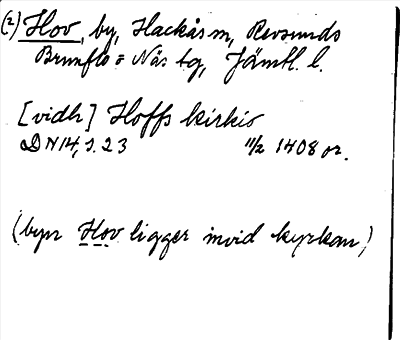 (2) Hov, by, Hackås sn, Revsunds
Brunflo o Näs tg, Jämtl. l.
[vidh] Hoffs kirkio
DN 14, s. 23 11/2 1408 or.
(byn Hov ligger invid kyrkan)